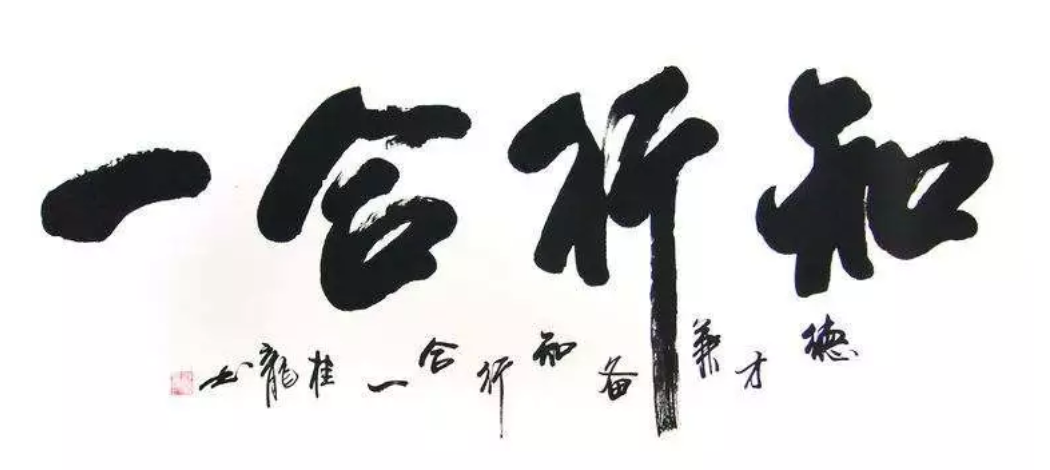 知行合一
德才兼备知行合一桂龍书